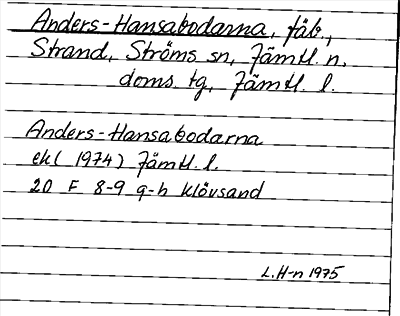 Anders-Hansabodarna, fäb.,
Strand, Ströms sn, Jämtl. n.
doms. tg, Jämtl. l.
Anders-Hansabodarna
ek (1974) Jämtl. l.
20 F 8-9 g-h Klövsand
L.H-n 1975